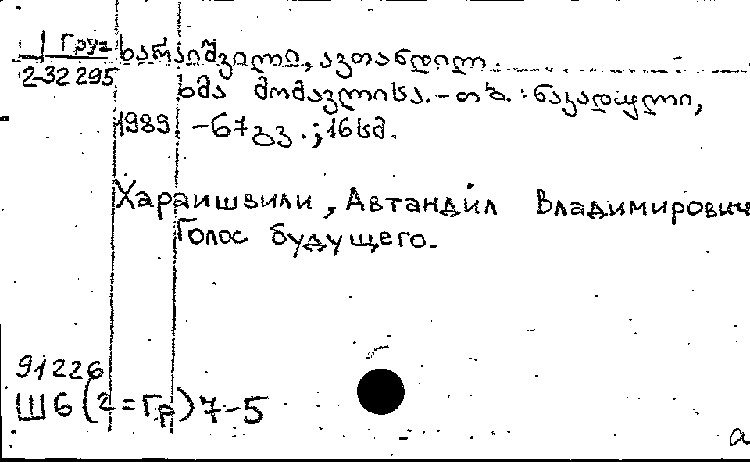 1 Груз
2-32 295
ხარაიშვილი, ავთანდილ.
ხმა მომავლისა.-თბ.: ნაკადული,
1989. -67გვ.; 16სმ.
Хараишвили, Автандил Владимирович
Голос будущего.
91226
Ш6(2=Гр)7-5
а